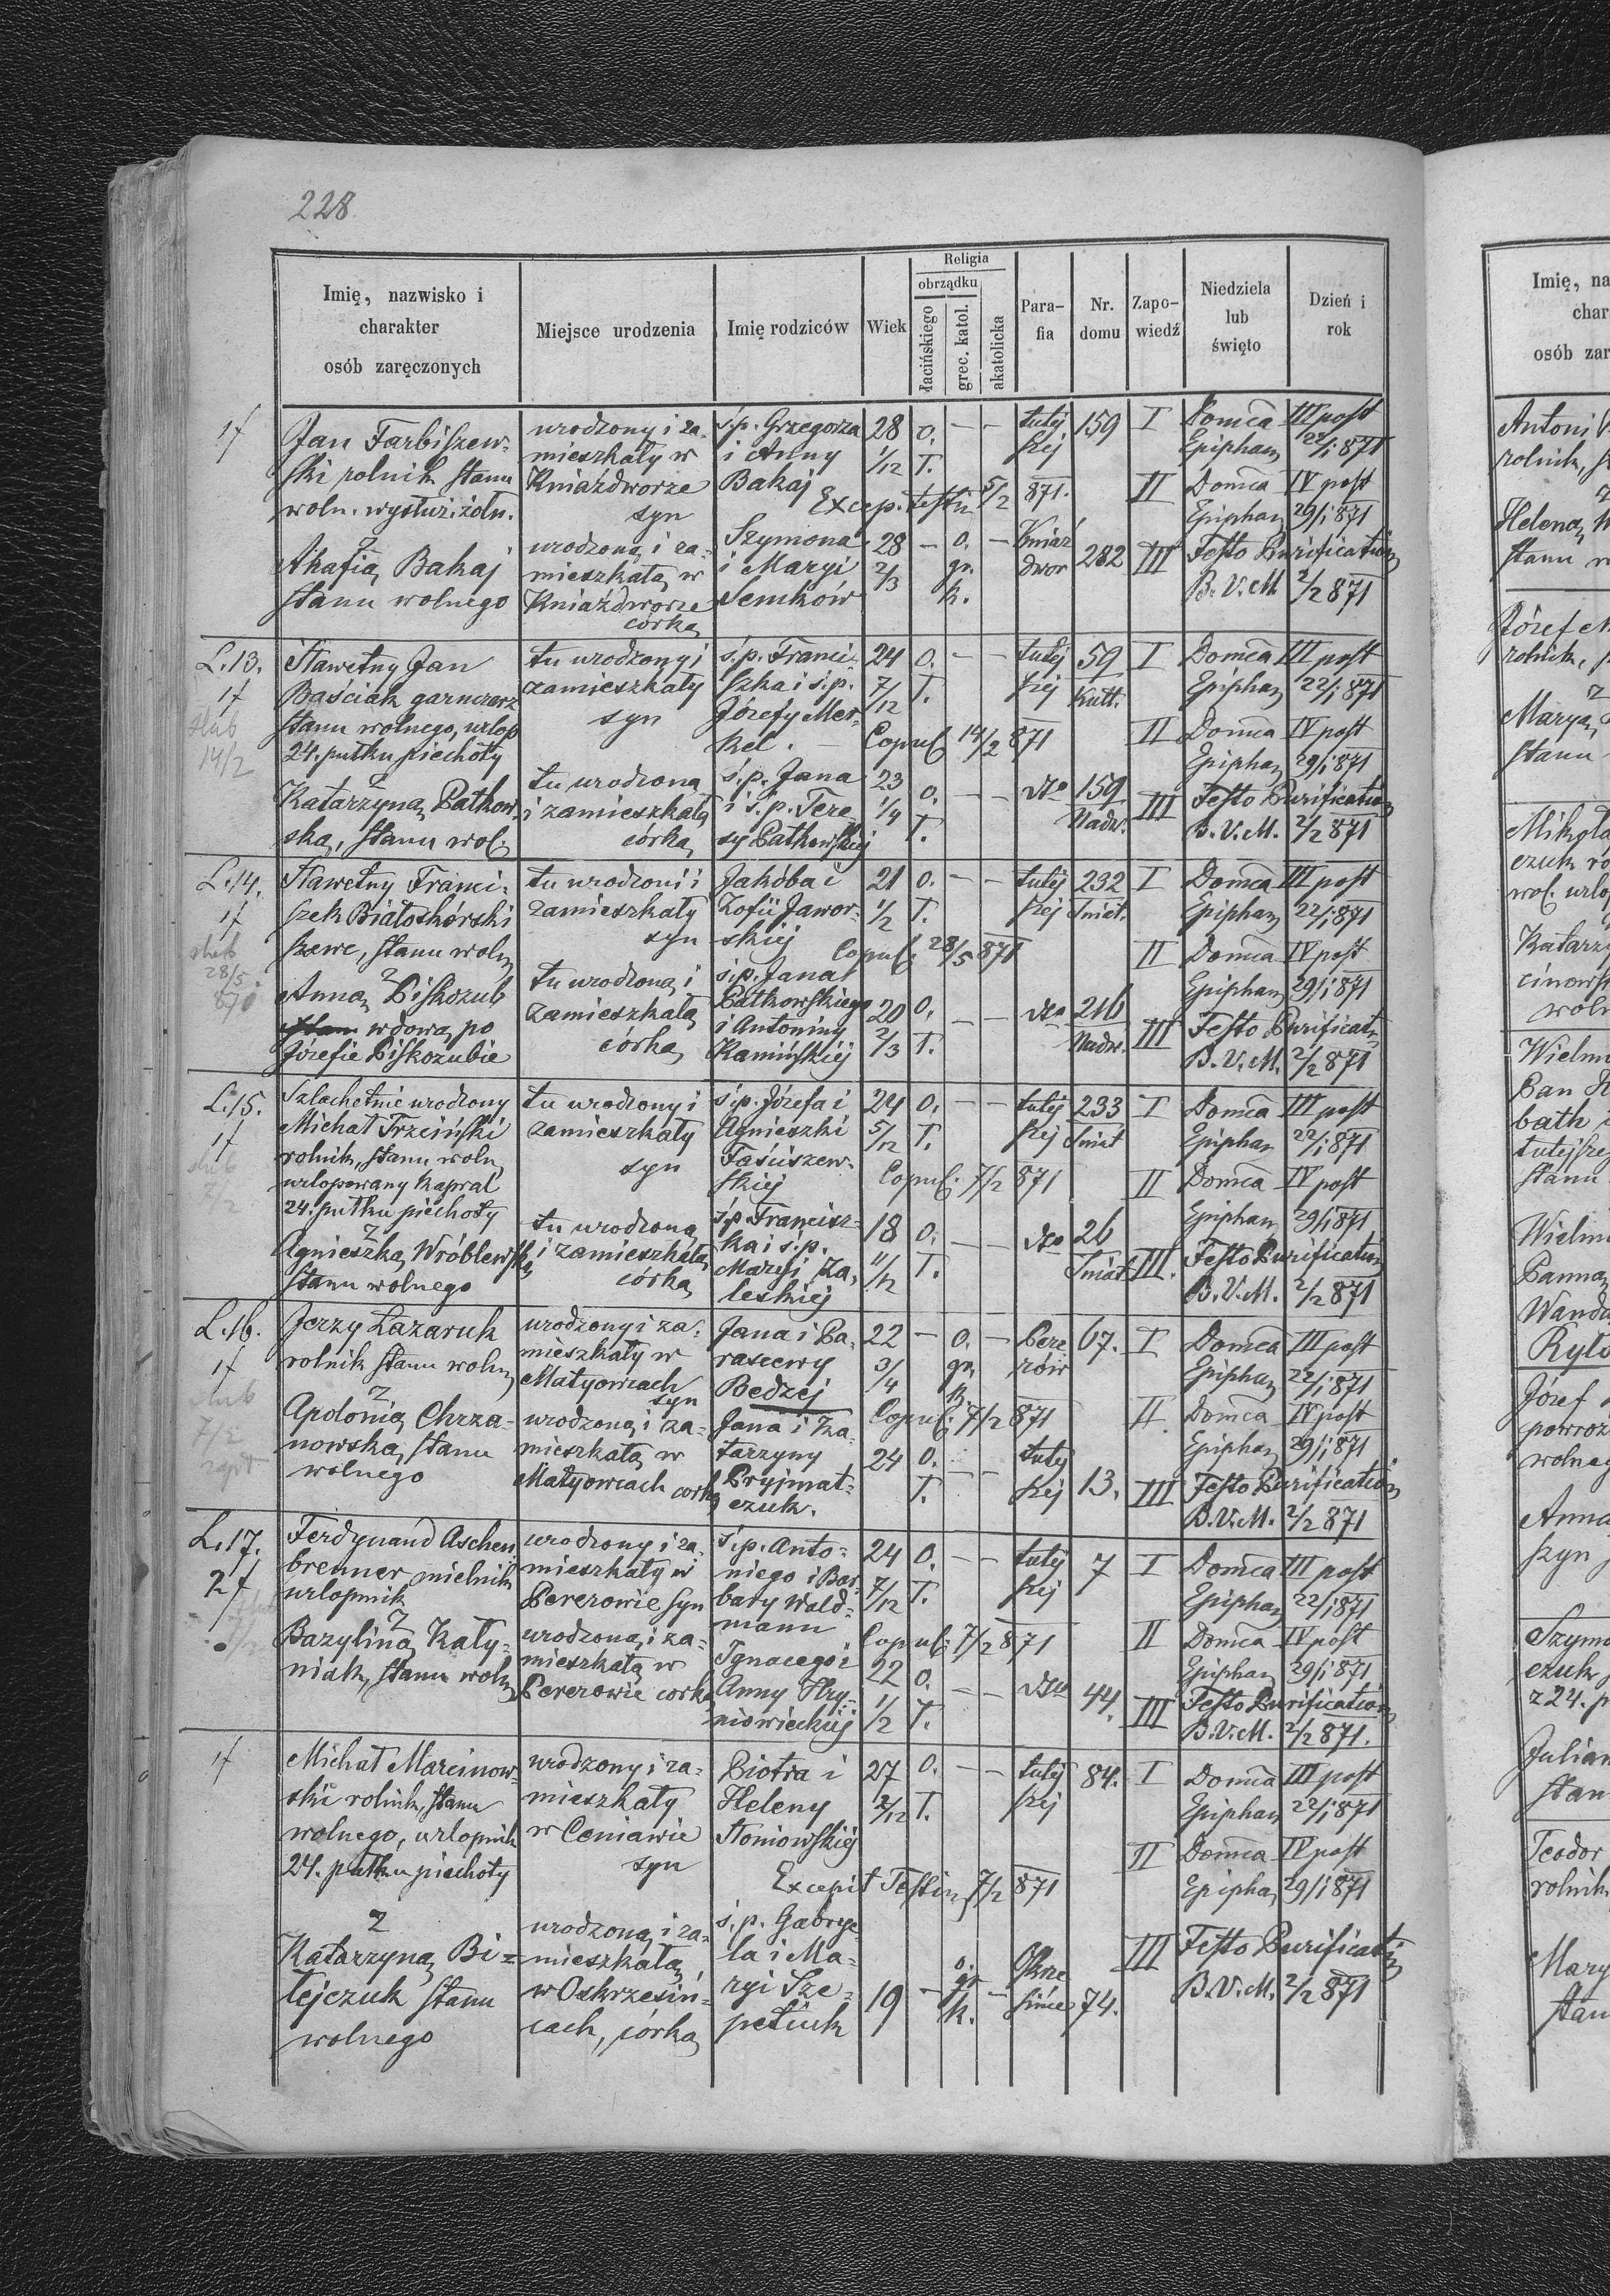 228
Imię, nazwisko i
charakter
osób zaręczonych
Miejsce urodzenia
Imię rodziców
Wiek
Religia
obrządku
łacińskiego
grec. katol.
akatolicka
Para-
fia
Nr.
domu
Zapo-
wiedź
Niedziela
lub
święto
Dzień i
rok
Jan Farbiszew-
ski rolnik stanu
woln. wysłuż. żołn.
urodzony i za-
mieszkały w
Kniaźdworze
syn
ś.p. Grzegorza
i Anny
Bakaj
28 1/12
o.
Ł.
tutej
szej
159
I Domca III post
Epiphan 22/1 871
Excep. testim 5/2 871.
II Domca IV post
Epiphan 29/1 871
z
Ahafia Bakaj
stanu wolnego
urodzona i za-
mieszkała w
Kniaźdworze
córka
Szymona
i Maryi
Semków
28 2/3
o.
gr.
k.
Kniaź
dwor
282
III Festo Purification
B.V.M. 2/2 871
L.13.
Sławetny Jan
Baściak garncarz
stanu wolnego, urlop
24. pułku piechoty
tu urodzony i
zamieszkały
syn
ś.p. Franci-
szka i ś.p.
Józefy Mer-
kel.
24 7/12
o.
Ł.
tutej
szej
59
Kutt.
I Domca III post
Epiphan 22/1 871
ślub
14/2
Copul. 14/2 871
II Domca IV post
Epiphan 29/1 871
z
Katarzyna Patkow-
ska, stanu wol.
tu urodzona
i zamieszkała
córka
ś.p. Jana
i ś.p. Tere-
sy Patkowskiej
23 1/4
o.
Ł.
dto
159
Nadw.
III Festo Purification
B.V.M. 2/2 871
L.14.
Sławetny Franci-
szek Białoskórski
szewc, stanu woln
tu urodzoni i
zamieszkały
syn
Jakóba i
Zofii Jawor-
skiej
21 1/2
o.
Ł.
tutej
szej
232
Śniat.
I Domca III post
Epiphan 22/1 871
ślub
28/5
870
Copul. 28/5 871
II Domca IV post
Epiphan 29/1 871
z
Anna Piskozub
wdowa po
Józefie Piskozubie
tu urodzona i
zamieszkała
córka
ś.p. Jana
Patkowskiego
i Antoniny
Kamińskiej
20 2/3
o.
Ł.
dto
216
Nadw.
III Festo Purificat
B.V.M. 2/2 871
L.15.
Szlachetnie urodzony
Michał Trzciński
rolnik, stanu woln
urlopowany kapral
24. pułku piechoty
tu urodzony i
zamieszkały
syn
ś.p. Józefa i
Agnieszki
Faściszew-
skiej
24 5/12
o.
Ł.
tutej
szej
233
Śniat
I Domca III post
Epiphan 22/1 871
ślub
7/2
Copul. 7/2 871
II Domca IV post
Epiphan 29/1 871
z
Agnieszka Wróblewska
stanu wolnego
tu urodzona
i zamieszkała
córka
ś.p. Francisz-
ka i ś.p.
Maryi Za-
leskiej
18 11/12
o.
Ł.
dto
26
Śniat
III. Festo Purification
B.V.M. 2/2 871
L.16.
Jerzy Łazaruk
rolnik stanu woln
urodzony i za-
mieszkały w
Matyowcach
syn
Jana i Pa-
rascewy
Bedzej
22 3/4
o.
gr.
k.
Pere
rów
67.
I Domca III post
Epiphan 22/1 871
ślub
7/2
Copul. 7/2 871
II Domca IV post
Epiphan 29/1 871
z
Apolonia Chrza-
nowska, stanu
wolnego
urodzona i za-
mieszkała w
Matyowcach corka
Jana i Ka-
tarzyny
Pryjmat-
czuk.
24
o.
Ł.
tutej
szej
13.
III Festo Purification
B.V.M. 2/2 871
L.17.
Ferdynand Aschen
brenner mielnik
urlopnik
urodzony i za-
mieszkały w
Pererowie syn
ś.p. Anto-
niego i Bar-
bary Wald-
mann
24 7/12
o.
Ł.
tutej
szej
7
I Domca III post
Epiphan 22/1 871
Copul. 7/2 871
II Domca IV post
Epiphan 29/1 871
z
Bazylina Katy-
niak, stanu woln
urodzona i za-
mieszkała w
Pererowie corka
Ignacego i
Anny Hry-
niowieckiej
22 1/2
o.
Ł.
dto
44.
III Festo Purification
B.V.M. 2/2 871.
Michał Marcinow-
ski rolnik, stanu
wolnego, urlopnik
24. pułku piechoty
urodzony i za-
mieszkały
w Ceniawie
syn
Piotra i
Heleny
Słoniowskiej
27 2/12
o.
Ł.
tutej
szej
84.
I Domca III post
Epiphan 22/1 871
Excepit Testim 7/2 871
II Domca IV post
Epipha 29/1 871
z
Katarzyna Bi-
łejczuk stanu
wolnego
urodzona i za-
mieszkała
w Oskrzesiń-
cach, córka
ś.p. Gabrye-
la i Ma-
ryi Sze-
petiuk
19
o.
gr
k.
Okrze
sińce
74.
III Festo Purificatio
B.V.M. 2/2 871
Imię, na
char
osób zar
Antoni
rolnik,
Helena
stanu
Józef
rolnik,
Marya
stanu
Mikoła
czuk ro
wol. urlo
Katarzy
cinows
woln
Wielm
Pan
bath
tutejsze
stanu
Wielm
Panna
Wanda
Ryls
Józef
powroz
wolneg
Anna
szyn
Szym
czuk
z 24. p
Julian
stan
Teodor
rolnik
Mary
stan